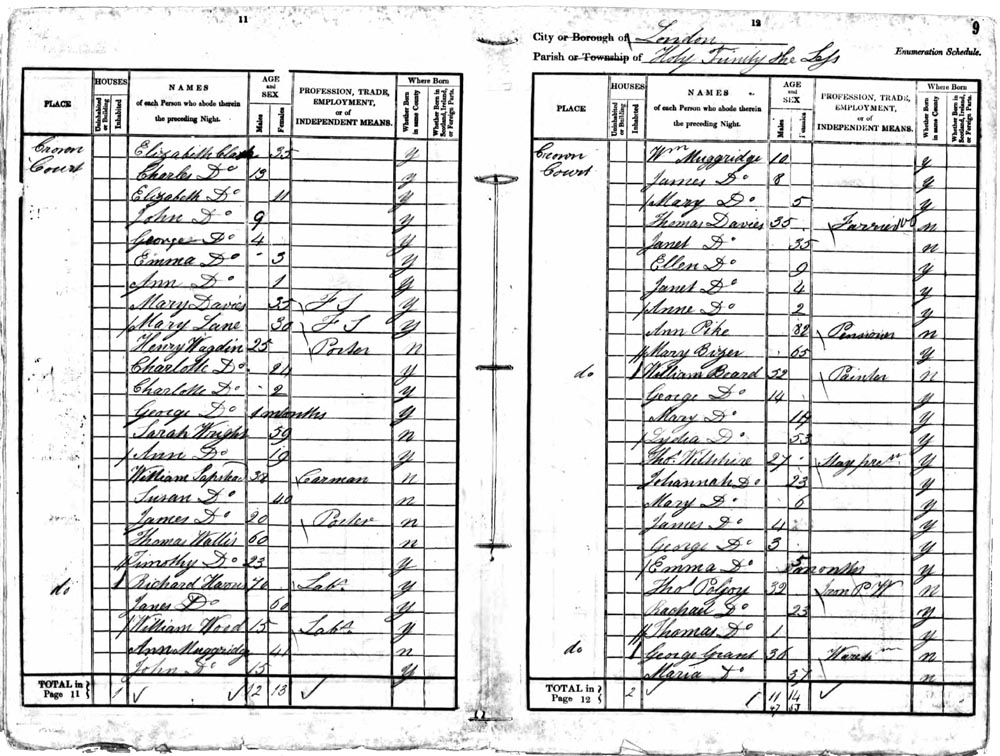 11
PLACE
HOUSES
Uninhabited or Building
Inhabited
NAMES
of each Person who abode therein the preceding Night.
AGE and SEX
Males
Females
PROFESSION, TRADE, EMPLOYMENT, or of INDEPENDENT MEANS.
Where Born
Whether Born in same County
Whether Born in Scotland, Ireland, or Foreign Parts.
Crown Elizabeth Clark 35 y
Court Charles Do 13 y
Elizabeth Do 11 y
John Do 9 y
George Do 4 y
Emma Do 3 y
Ann Do 1 y
Mary Davies 35 F S y
Mary Lane 30 F S y
Henry Wagdin 25 Porter n
Charlotte Do 24 y
Charlotte Do 2 y
George Do months y
Sarah Wright 59 n
Ann Do 19 y
William 38 Carman n
Susan Do 40 n
James Do 20 Porter n
Thomas Wallis 60 n
Timothy Do 23 y
do 1 Richard Harris 70 Lab. y
Janes Do 60 y
William Wood 15 Lab. y
Ann Muggridge 41 n
John Do 15 y
TOTAL in Page 11 1 12 13
12
9
City or Borough of London
Parish or Township of Holy Trinity the Less
Enumeration Schedule.
PLACE
HOUSES
Uninhabited or Building
Inhabited
NAMES
of each Person who abode therein the preceding Night.
AGE and SEX
Males
Females
PROFESSION, TRADE, EMPLOYMENT, or of INDEPENDENT MEANS.
Where Born
Whether Born in same County
Whether Born in Scotland, Ireland, or Foreign Parts.
Crown Wm Muggridge 10 y
Court James Do 8 y
Mary Do 5 y
Thomas Davies 35 Farrier n
Janet Do 35 n
Ellen Do 9 y
Janet Do 4 y
Anne Do 2 y
Ann Pike 82 Pensioner n
Mary Bizer 65 y
do 1 William Beard 52 Painter n
George Do 14 y
Mary Do y
Lydia Do 53 y
Thos. Wiltshire 27 y
Johannah Do 23 y
Mary Do 6 y
James Do 4 y
George Do 3 y
Emma Do 5 months y
Thos 32 Iron n
Rachael Do 23 y
Thomas Do 1 y
do 1 George Grant 36 n
Maria Do 37 n
TOTAL in Page 12 2 11 14